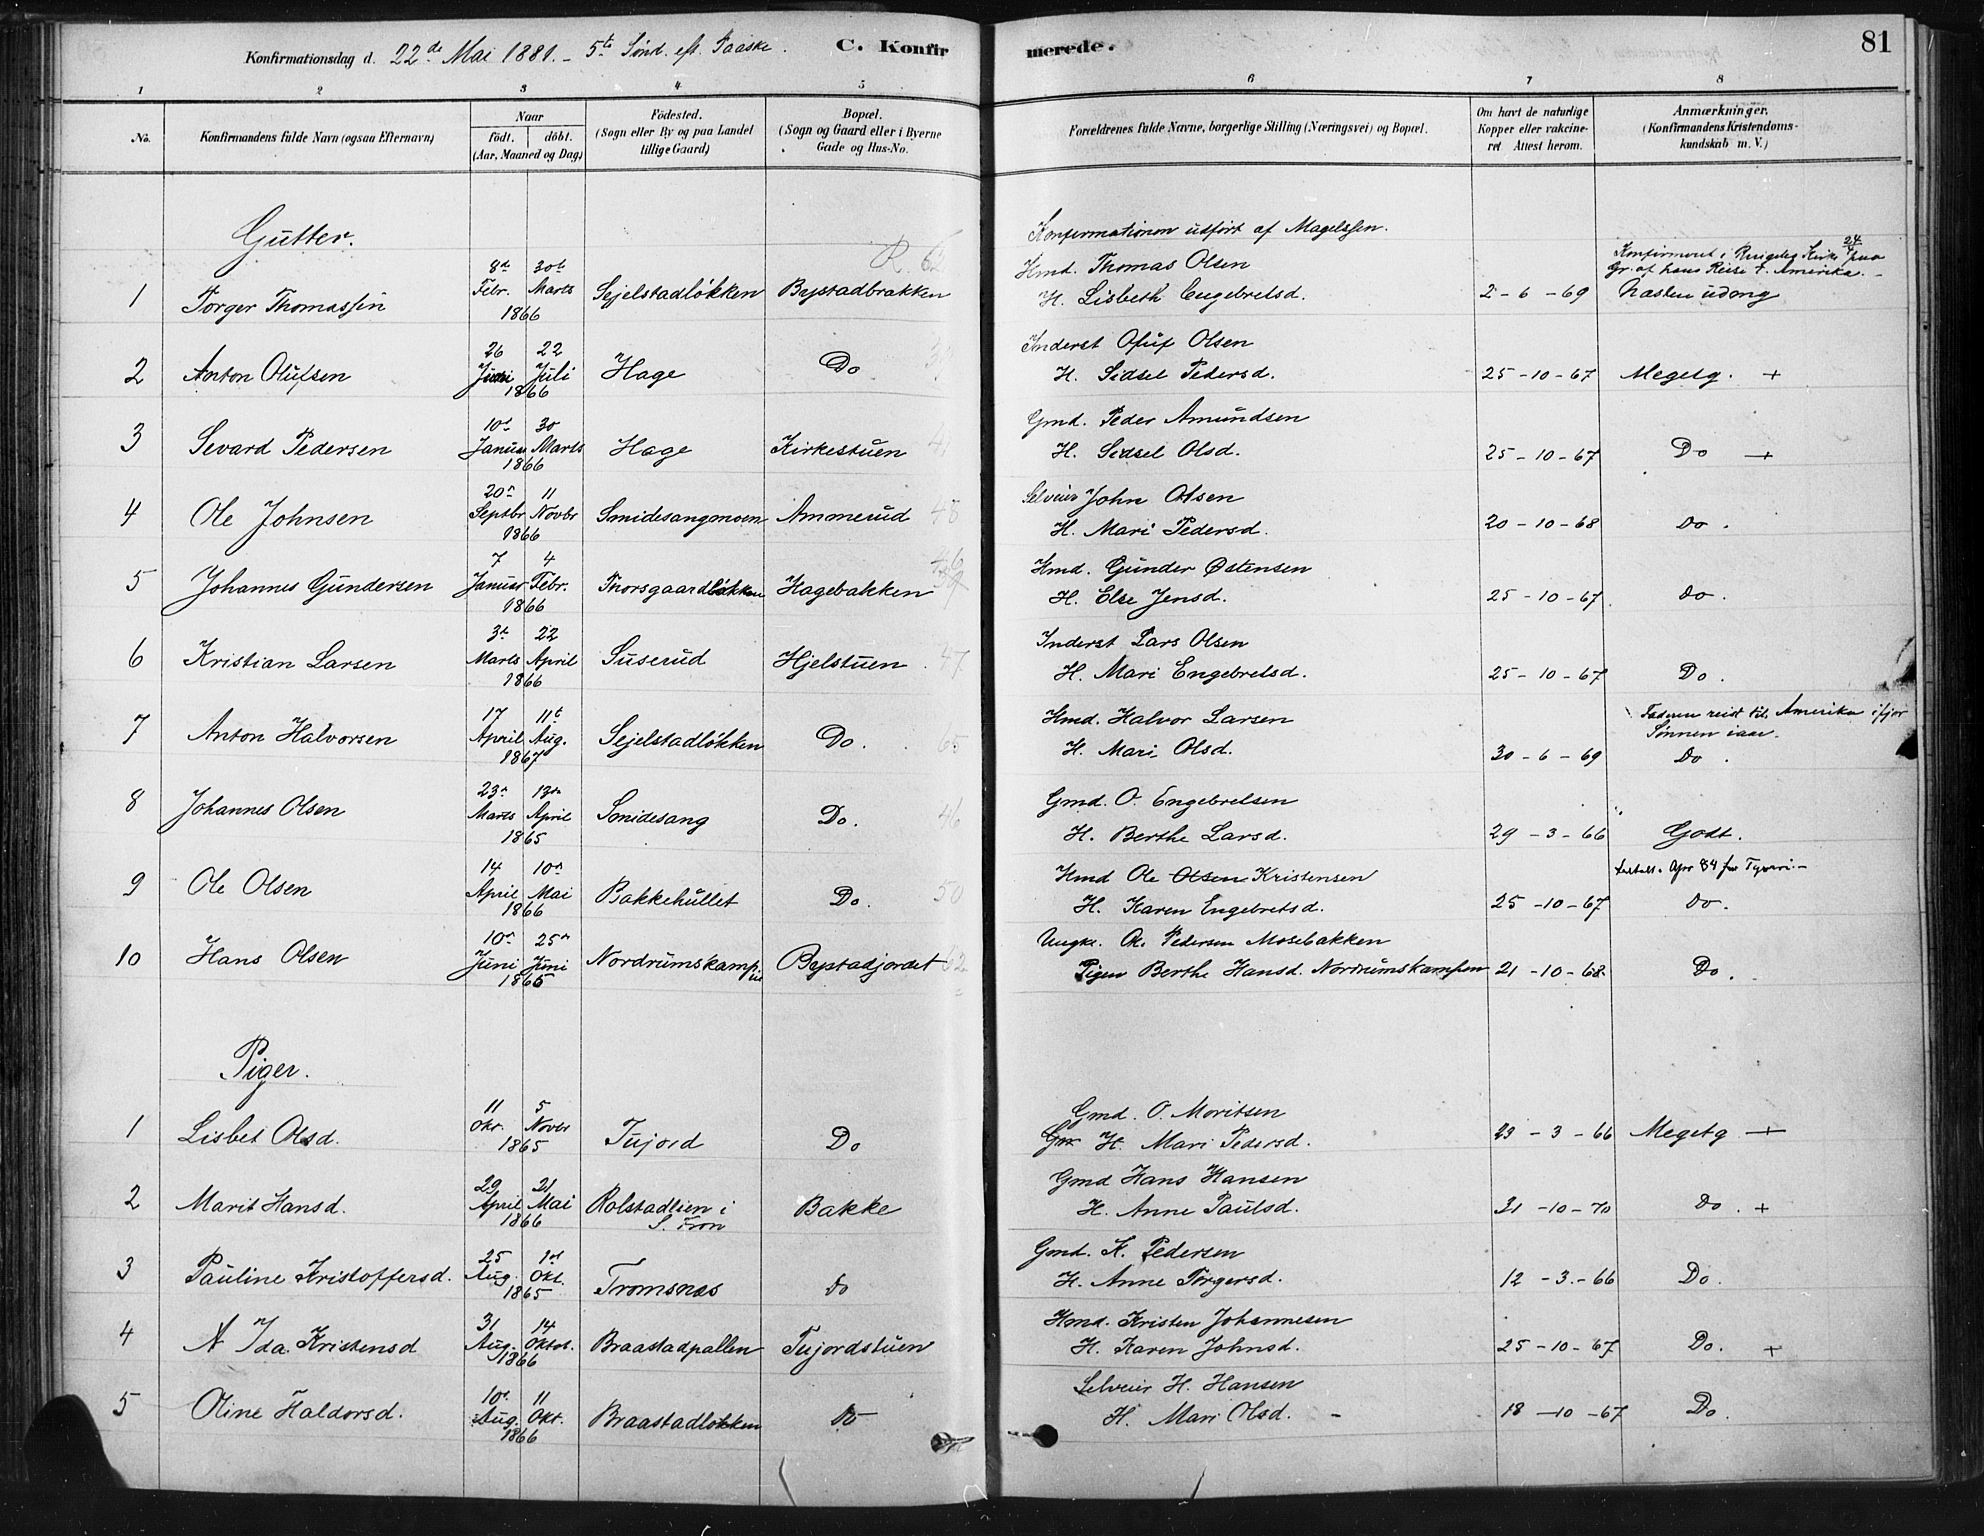 Konfirmationsdag d. 22de Mai 1881. - 5te Sønd. eft. Paaske. C. Konfirmerede. 81
1 2 3 4 5 6 7 8
No. Konfirmandens fulde Navn (ogsaa Efternavn) Naar födt. döbt. (Aar, Maaned og Dag) Födested. (Sogn eller By og paa Landet tillige Gaard) Bopæl. (Sogn og Gaard eller i Byerne Gade og Hus-No. Forældrenes fulde Navne, borgerlige Stilling (Næringsvei) og Bopæl. Om havt de naturlige Kopper eller vakcineret Attest herom. Anmærkninger. (Konfirmandens Kristendomskundskab m. V.)
Gutter. Konfirmationen udført af Magelssen.
R. 62
Konfirmeret i Ringebu Kirke 24/4 paa
Gr. af hans Reise t. Amerika. -
1 Torger Thomassen 8de Febr. 30te Marts 1866 Sejelstadløkken Bystadbrakken Hmd. Thomas Olsen
H. Lisbeth Engebretsd. 2 - 6 - 69 Næsten udmg
2 Anton Olufsen 26 Juni 22 Juli 1866 Hage Do Inderst Oluf Olsen
H. Sidsel Pedersd. 25 - 10 - 67 Megetg. +
3 Sevard Pedersen 10de Januar 30 Marts 1866 Hage Kirkestuen Gmd. Peder Amundsen
H. Sidsel Olsd. 25 - 10 - 67 Do +
4 Ole Johnsen 20de Septbr 11 Novbr 1866 Smidesangmoen Ammerud 48 Selveier John Olsen
H. Mari Pedersd. 20 - 10 - 68 Do.
5 Johannes Gundersen 7 Januar 4 Febr. 1866 Thorsgaardløkken Hagebakken Hmd. Gunder Østensen
H. Else Jensd. 25 - 10 - 67. Do.
6 Kristian Larsen 3de Marts 22 April 1866 Suserud Hjelstuen. 47 Inderst Lars Olsen
H. Mari Engebretsd. 25 - 10 - 67 Do.
Faderen reist til Amerika ifjor
Sønnen iaar.
7 Anton Halvorsen 17 April 11te Aug. 1867 Sejelstadløkken Do. 65 Hmd. Halvor Larsen
H. Mari Olsd. 30 - 6 - 69 Do.
8 Johannes Olsen 23de Marts 13de April 1865 Smidesang Do. 46 Gmd. O. Engebretsen
H. Berthe Larsd. 29 - 3 - 66 Godt.
9 Ole Olsen 14 April 10de Mai 1866 Bakkehullet Do. 50 Hmd Ole Olsen Kristensen
H. Karen Engebretsd. 25 - 10 - 67 Do.
84 for Tyveri -
10 Hans Olsen 10de Juni 25de Juni 1865 Nordrumskampen Bystadjordet Ungk. Ol. Pedersen Mosebakken
Pigen Berthe Hansd. Nordrumskampen 21 - 10 - 68 Do.
Piger.
1 Lisbet Olsd. 11 Okt. 5 Novbr 1865 Tujord Do Gmd. O. Moritsen
H. Mari Pedersd. 23 - 3 - 66 Megetg +
2 Marit Hansd. 29 April 21 Mai 1866 Rolstadlien i S. Fron Bakke Gmd Hans Hansen
H. Anne Paulsd. 31 - 10 - 70 Do. +
3 Pauline Kristoffersd. 25 Aug. 1ste Okt. 1865 Tromsnæs do Gmd. K. Pedersen
H. Anne Torgersd. 12 - 3. - 66 Do.
4 A Ida Kristensd 31 Aug. 14 Oktbr. 1866 Braastadpallen Tujordstuen Hmd. Kristen Johannesen
H. Karen Johnsd. 25 - 10 - 67 Do. +
5 Oline Haldorsd. 10de Aug. 11 Okt. 1866 Braastadløkken Do Selveier H. Hansen
H. Mari Olsd. - 18 - 10 - 67 Do.